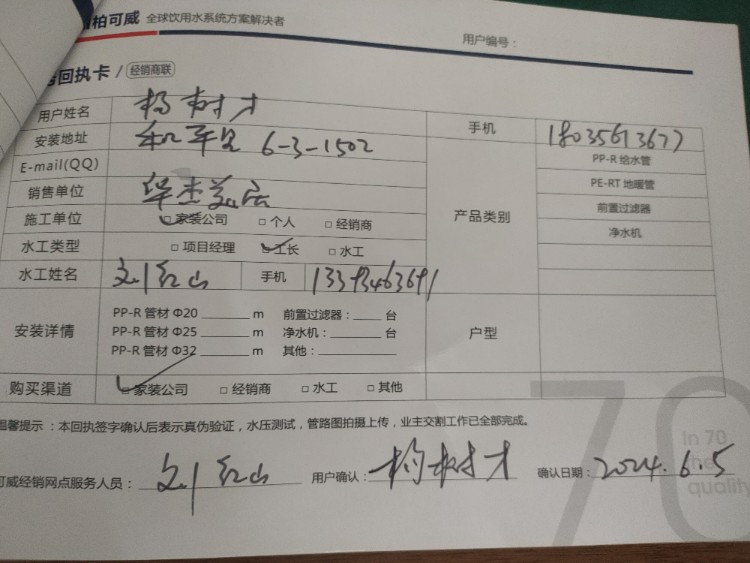 柏可威 全球饮用水系统方案解决者
用户编号：
回执卡 / 经销商联
用户姓名 杨树才 手机 18035613677
安装地址 和平居 6-3-1502
E-mail(QQ)
销售单位 华杰美居
产品类别
PP-R 给水管
PE-RT 地暖管
前置过滤器
净水机
施工单位 ☑家装公司 □个人 □经销商
水工类型 □项目经理 ☑工长 □水工
水工姓名 刘红山 手机 13393463691
安装详情
PP-R 管材 Φ20 ______ m 前置过滤器：____ 台
PP-R 管材 Φ25 ______ m 净水机：____ 台
PP-R 管材 Φ32 ______ m 其他：______
户型
购买渠道 ☑家装公司 □经销商 □水工 □其他
温馨提示：本回执签字确认后表示真伪验证，水压测试，管路图拍摄上传，业主交割工作已全部完成。
可威经销网点服务人员：刘红山 用户确认：杨树才 确认日期：2024.6.5
70
In 70
the
quality